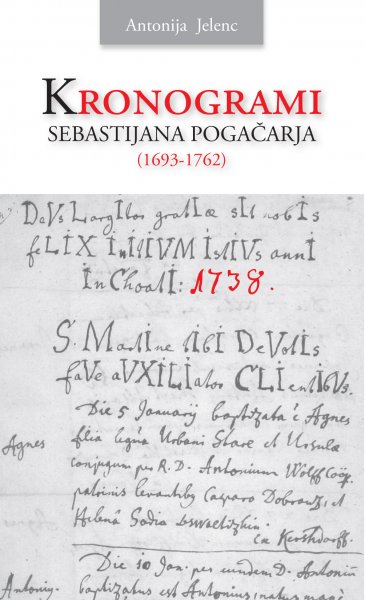 Antonija Jelenc
KRONOGRAMI
SEBASTIJANA POGAČARJA
(1693-1762)
DeVs LargItos gratIæ sIt nobIs
feLIX InItIVM IstIVs annI
InChoatI: 1738.
S. MartIne tIbI DeVotIs
faVe aVXILIatos CLIentIbVs.
Die 5 Januarij baptizata ē Agnes
Agnes
filia legitta Urbani Stare et Ursulæ
conjugum per R. D. Antonium Wolff
patrinis levantibus Casparo et
Helena
ex Kershdorff.
Die 10 Jan. per eundem D. Antoniū
Antoniy.
baptizatus est Antonius natus